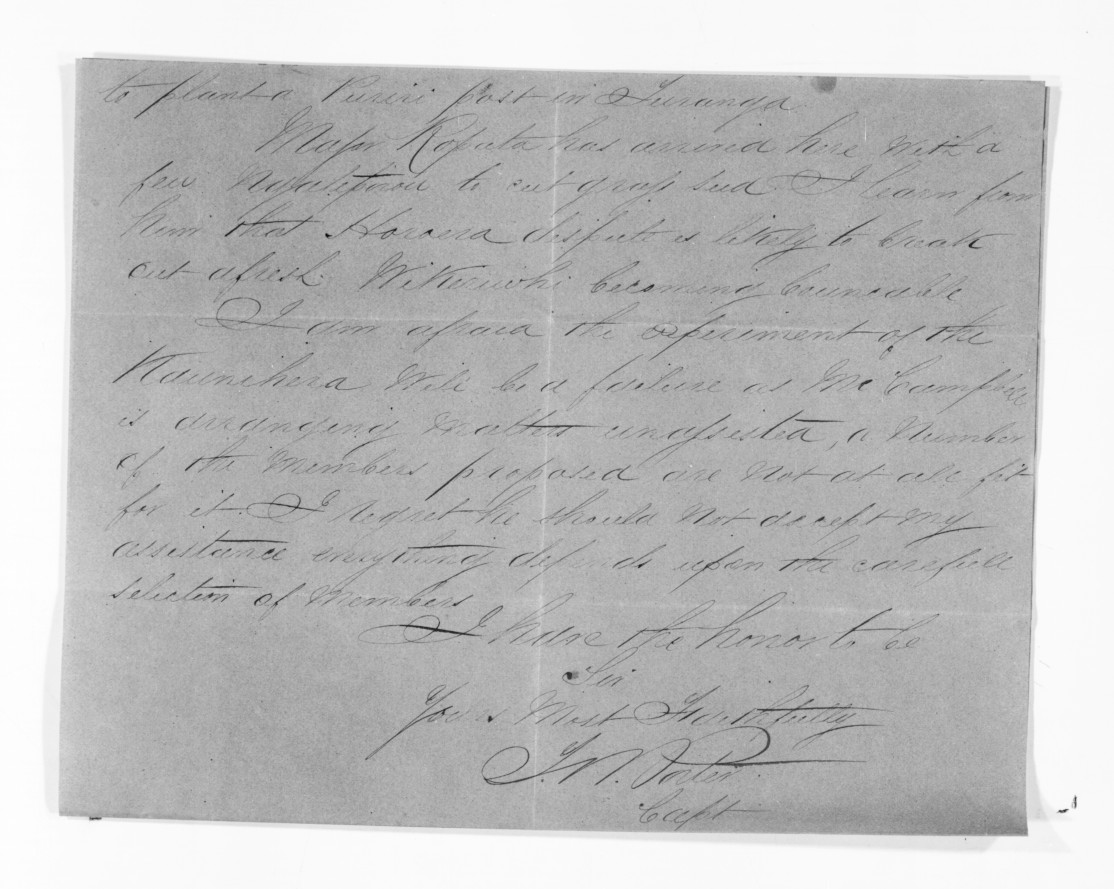 to plant a Puriri post in Turanga
Major Ropata has arrived here with a
few Ngatiporou to cut grass seed. I learn from
him that Horoera dispute is likely to break
out afresh. Wikiriwhi becoming
I am afraid the experiment of the
Kaunihera will be a failure as Mr Campbell
is arranging matters unassisted, a number
of the Members proposed are not at all fit
for it. I regret he should not accept my
assistance everything depends upon the carefull
selection of Members
I have the honor to be
Sir
Yours Most Faithfully
T. W. Porter
Capt